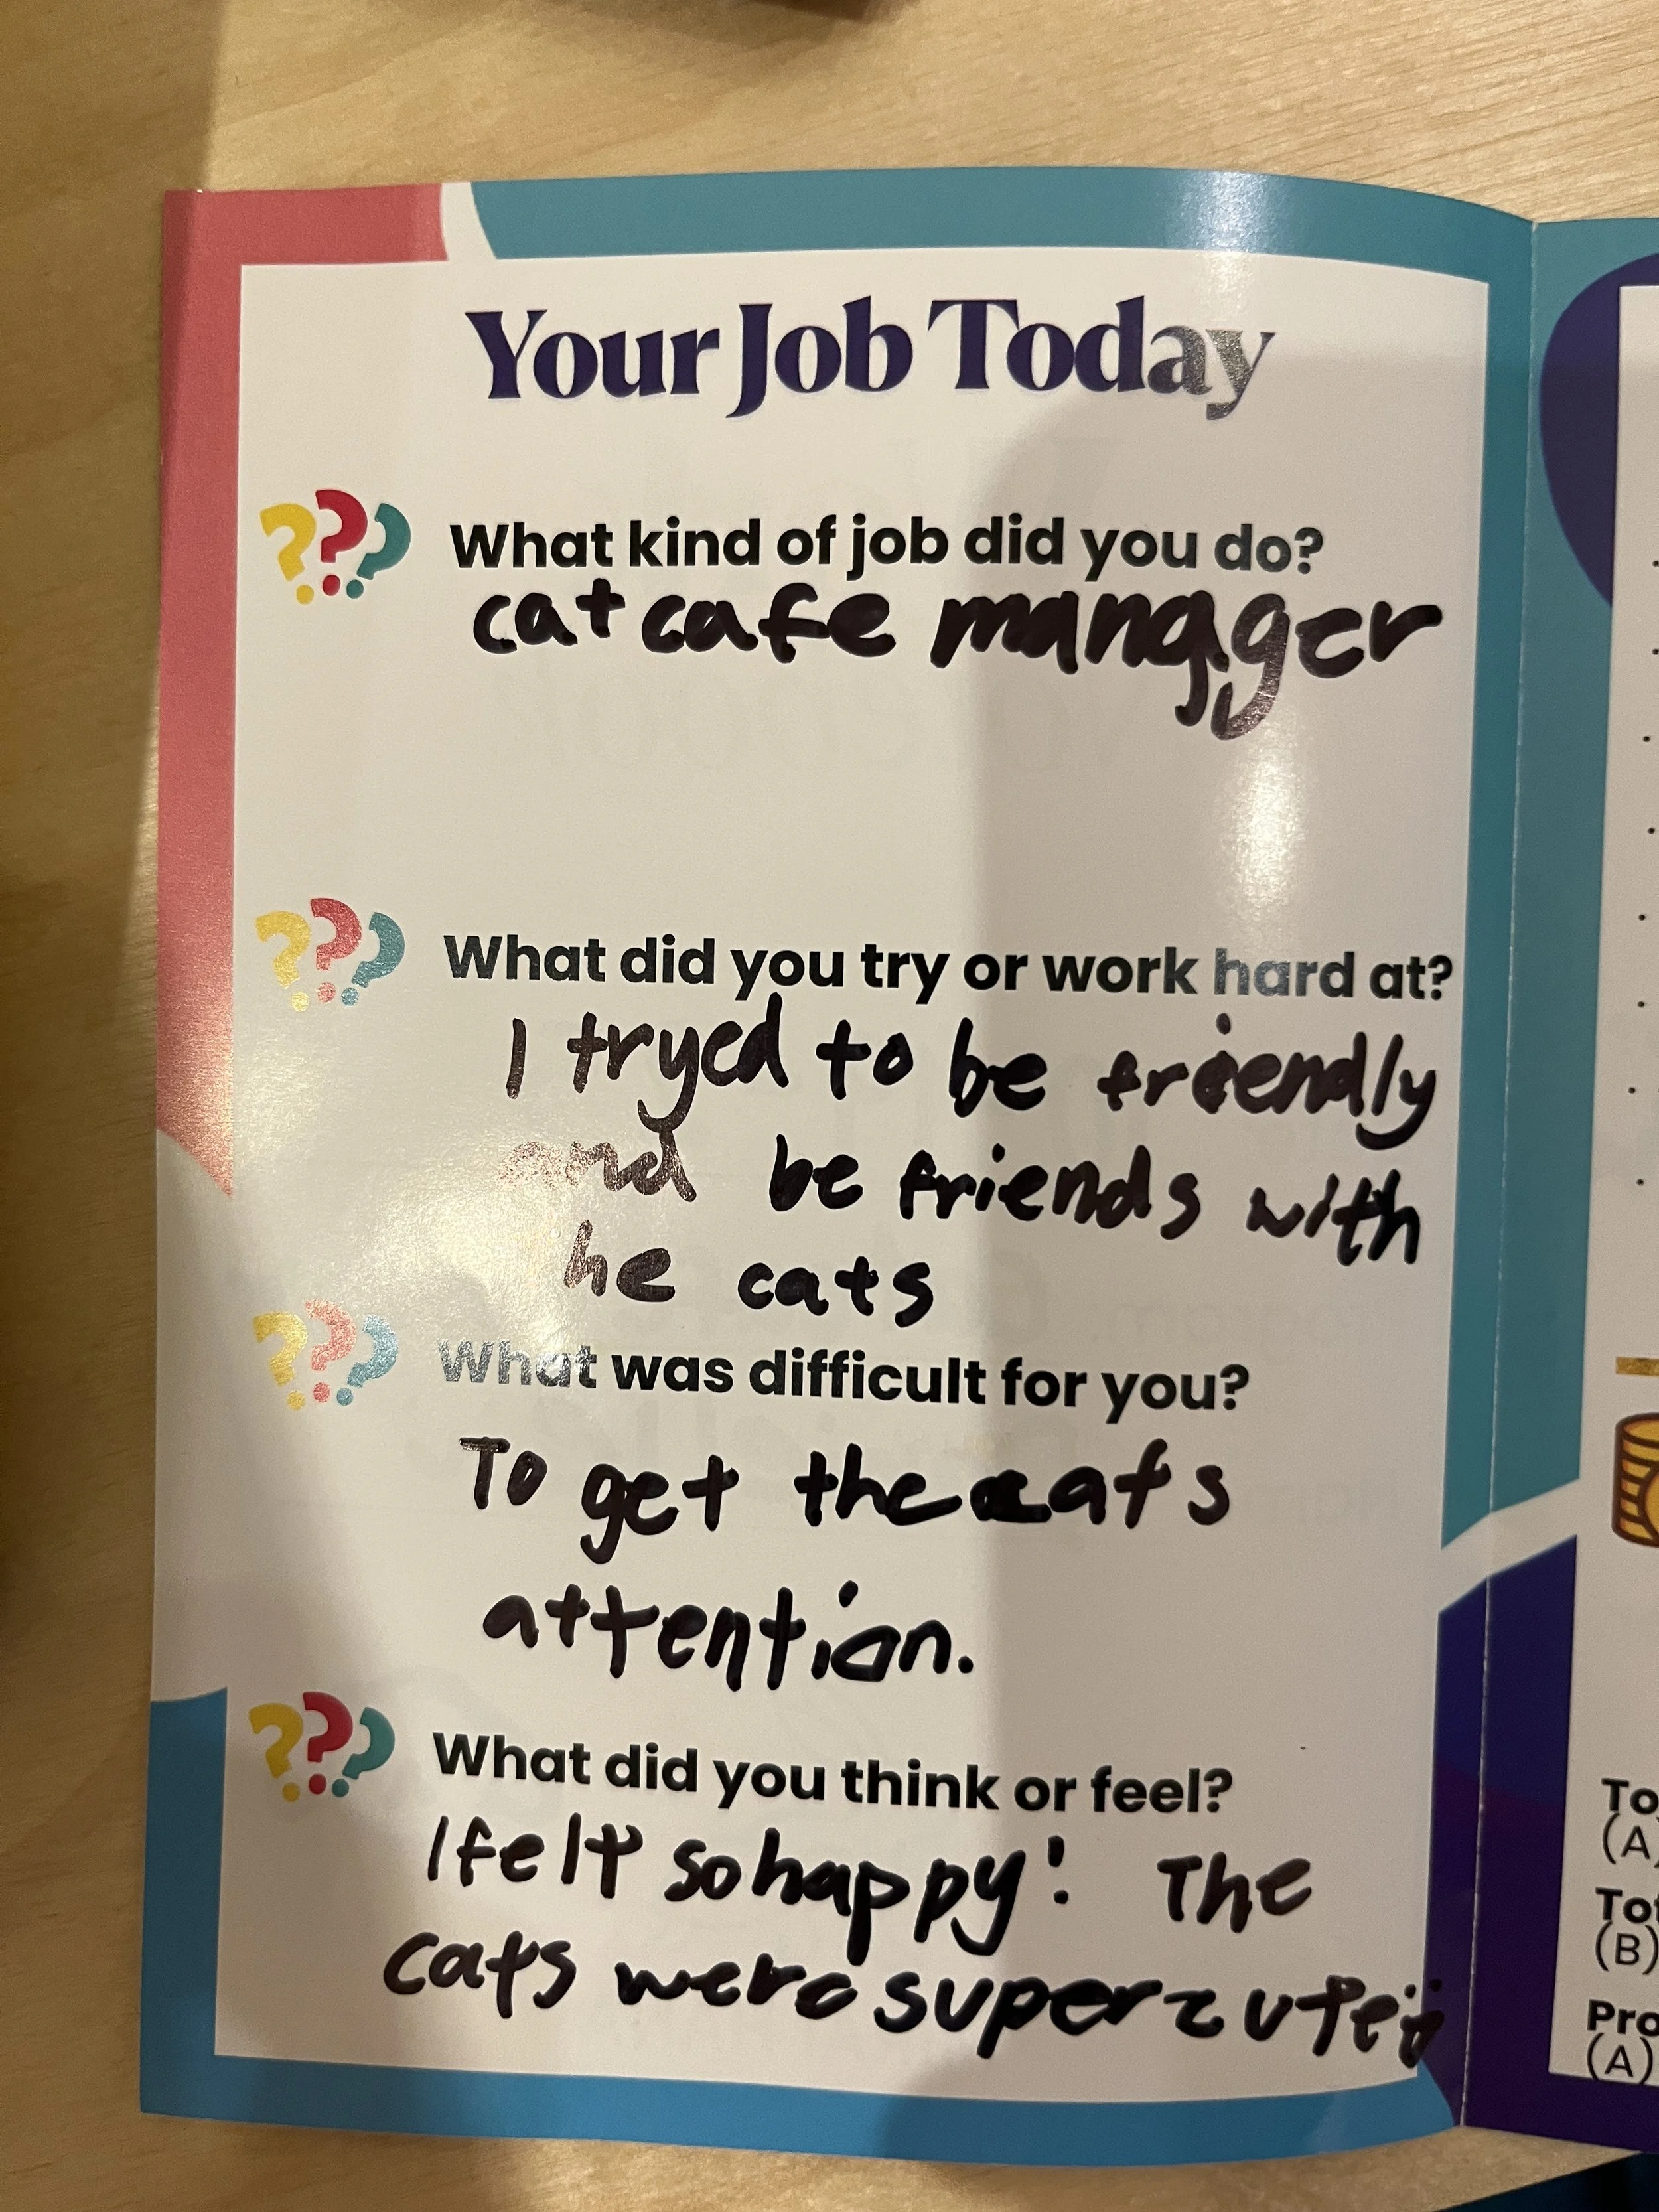 Your Job Today
What kind of job did you do?
cat cafe manager
What did you try or work hard at?
I tryed to be friendly
and be friends with
he cats
What was difficult for you?
To get the cats
attention.
What did you think or feel?
I felt so happy! The
cats were super cute
To
(A)
Tot
(B)
Pro
(A)